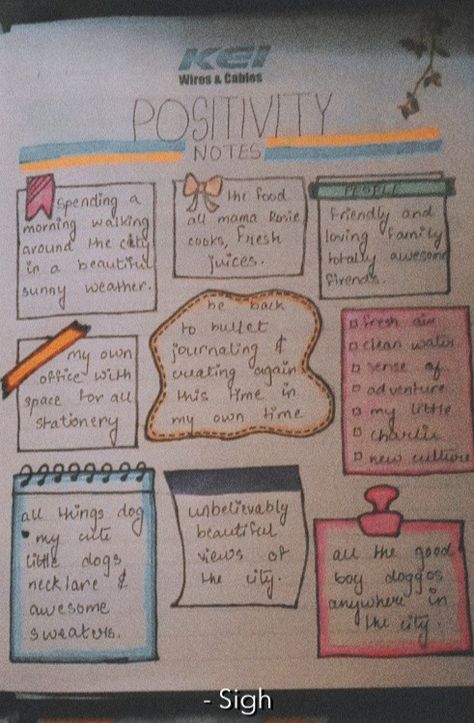 KEI
Wires & Cables
POSITIVITY
NOTES
Spending a
morning walking
around the city
in a beautiful
sunny weather.
the food
all mama Rosie
cooks, Fresh
juices.
PEOPLE
Friendly and
loving family
totally awesome
firends.
my own
office with
space for all
stationery
be back
to bullet
journaling &
creating again
this time in
my own time
fresh air
clean water
sense of
adventure
my little
charlie
new culture
all things dog
my cute
little dogs
necklare &
awesome
sweaters.
unbelievably
beautiful
views of
the city.
all the good
boy doggos
anywhere in
the city.
- Sigh